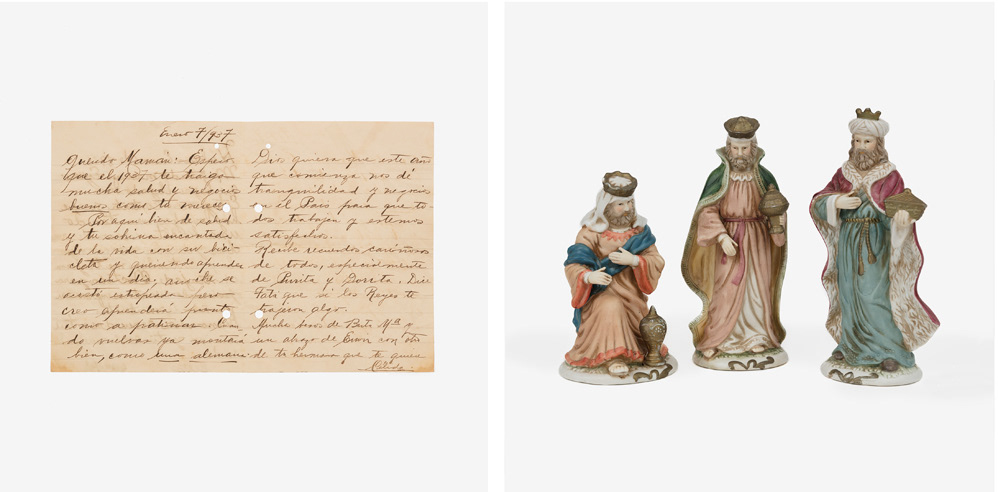 Enero 7/937
Querido Mamán: Espero
que el 1937 te traiga
mucha salud y negocio
buenos como tu mereces.
Por aquí bien de salud
y tu sobrina encantada
de la vida con su bici-
cleta y queriendo aprender
en un día; anoche se
acostó estropeada pero
creo aprenderá pronto
como a patinar.
do vuelvas ya montará
bien, como una alemana.
Dios quiera que este año
que comienza nos dé
tranquilidad y negocio
en el País para que to-
dos trabajen y estemos
satisfechos.
Recibe recuerdos cariñosos
de todos, especialmente
de Purita y Dorita. Dice
Tati que si los Reyes te
trajeron algo.
Mucho beso de Berta Mª y
un abrazo de Enon con otro
de tu hermana que te quiere